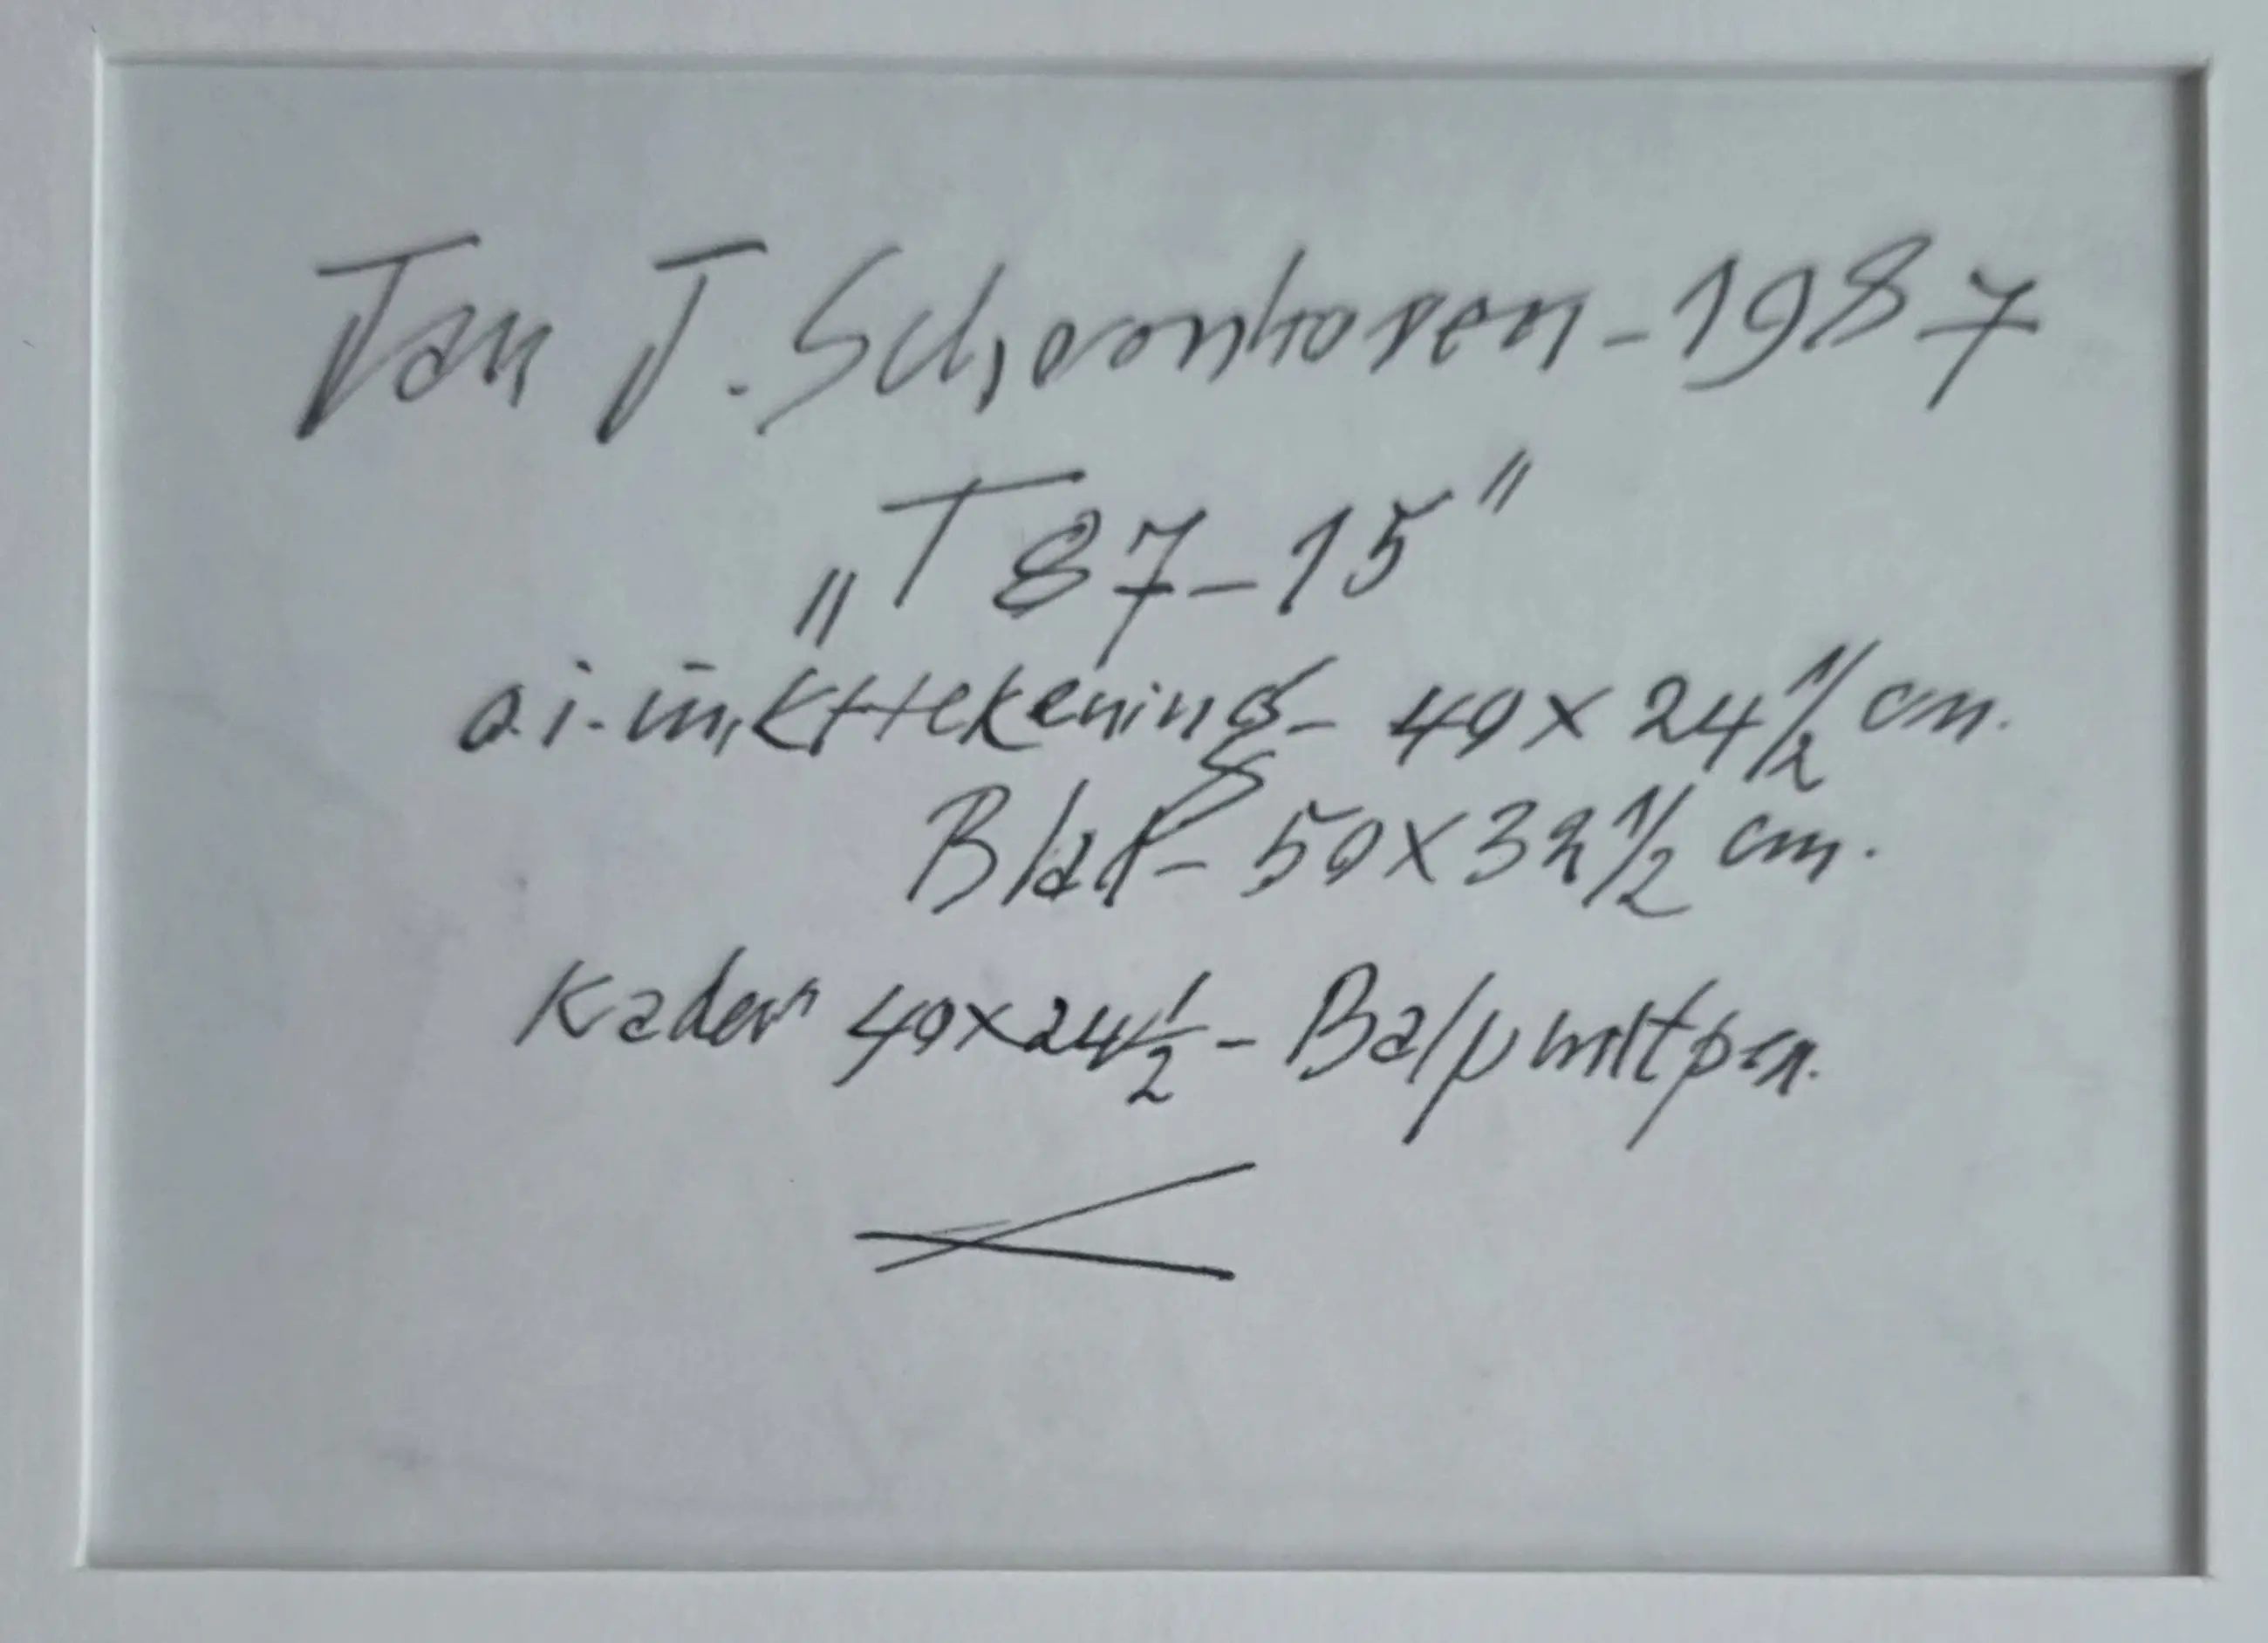 Jan J. Schoonhoven - 1987
„T 87-15"
o.i. inkttekening - 40 x 24 1/2 cm.
Blad - 50 x 32 1/2 cm.
Kader 40 x 24 1/2 - Balpuntpen.